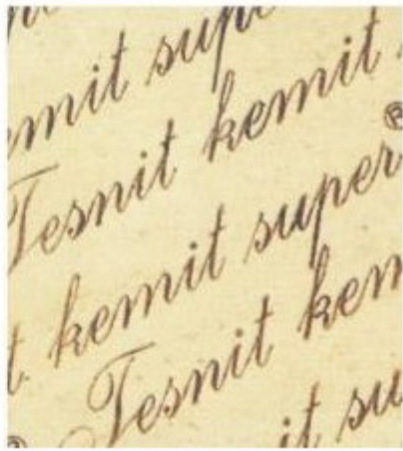 emit super
Tesnit kemit
®
t kemit super
Tesnit kem
it su